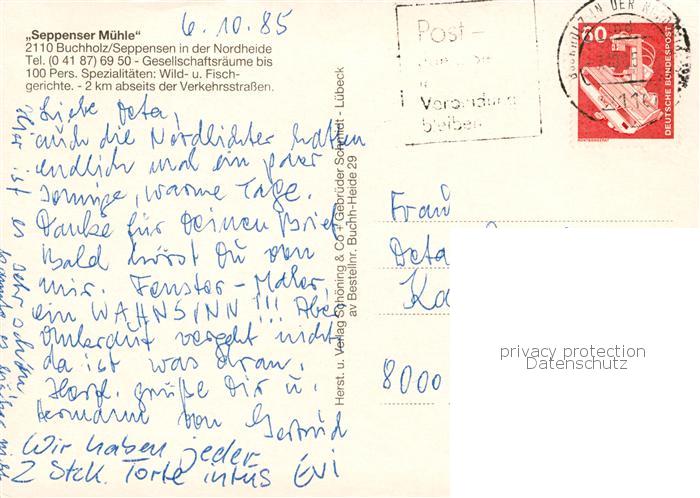 6.10.85
„Seppenser Mühle“
2110 Buchholz/Seppensen in der Nordheide
Tel. (0 41 87) 69 50 - Gesellschaftsräume bis
100 Pers. Spezialitäten: Wild- u. Fisch-
gerichte. - 2 km abseits der Verkehrsstraßen.
Liebe Deta,
auch die Nordlichter hatten
endlich mal ein paar
sonnige, warme Tage.
Danke für Deinen Brief.
Bald hörst Du von
mir. Fenster-Maler,
ein WAHNSINN!!! Aber
Unkraut vergeht nicht,
da ist was dran.
Herzl. Grüße Dir u.
Hermann von Gertrud
Wir haben jeder
2 Stck. Torte intus Evi
Hier ist es sehr schön,
Herst. u. Verlag Schöning & Co + Gebrüder Schmidt - Lübeck
av Bestellnr. Buchh-Heide 29
Post -
Verbindung
bleiben
BUCHHOLZ IN DER NORDHEIDE
80
DEUTSCHE BUNDESPOST
Frau
Deta
Ka
8000
privacy protection
Datenschutz